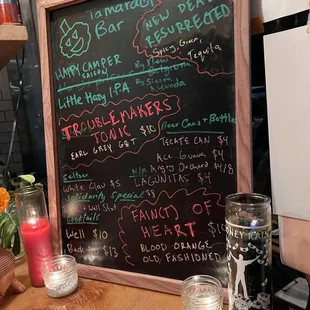 Tamarack
Bar
NEW DEAL
RESURRECTED
Spicy, Green,
Tequila
HAPPY CAMPER
SAISON
By New
Little Hazy I.PA
By Sierra
Nevada
TROUBLEMAKERS
TONIC
EARL GREY G&T $10
Beer Cans + Bottles
TECATE CAN $4
Ace Guava $4
N/A Angry Orchard $4/8
LAGUNITAS $4
Seltzer
White Claw $5
Solidarity Special $8
Well Shot
Cocktails
Well $10
$13
FAIN(T) OF
HEART
BLOOD ORANGE
OLD FASHIONED